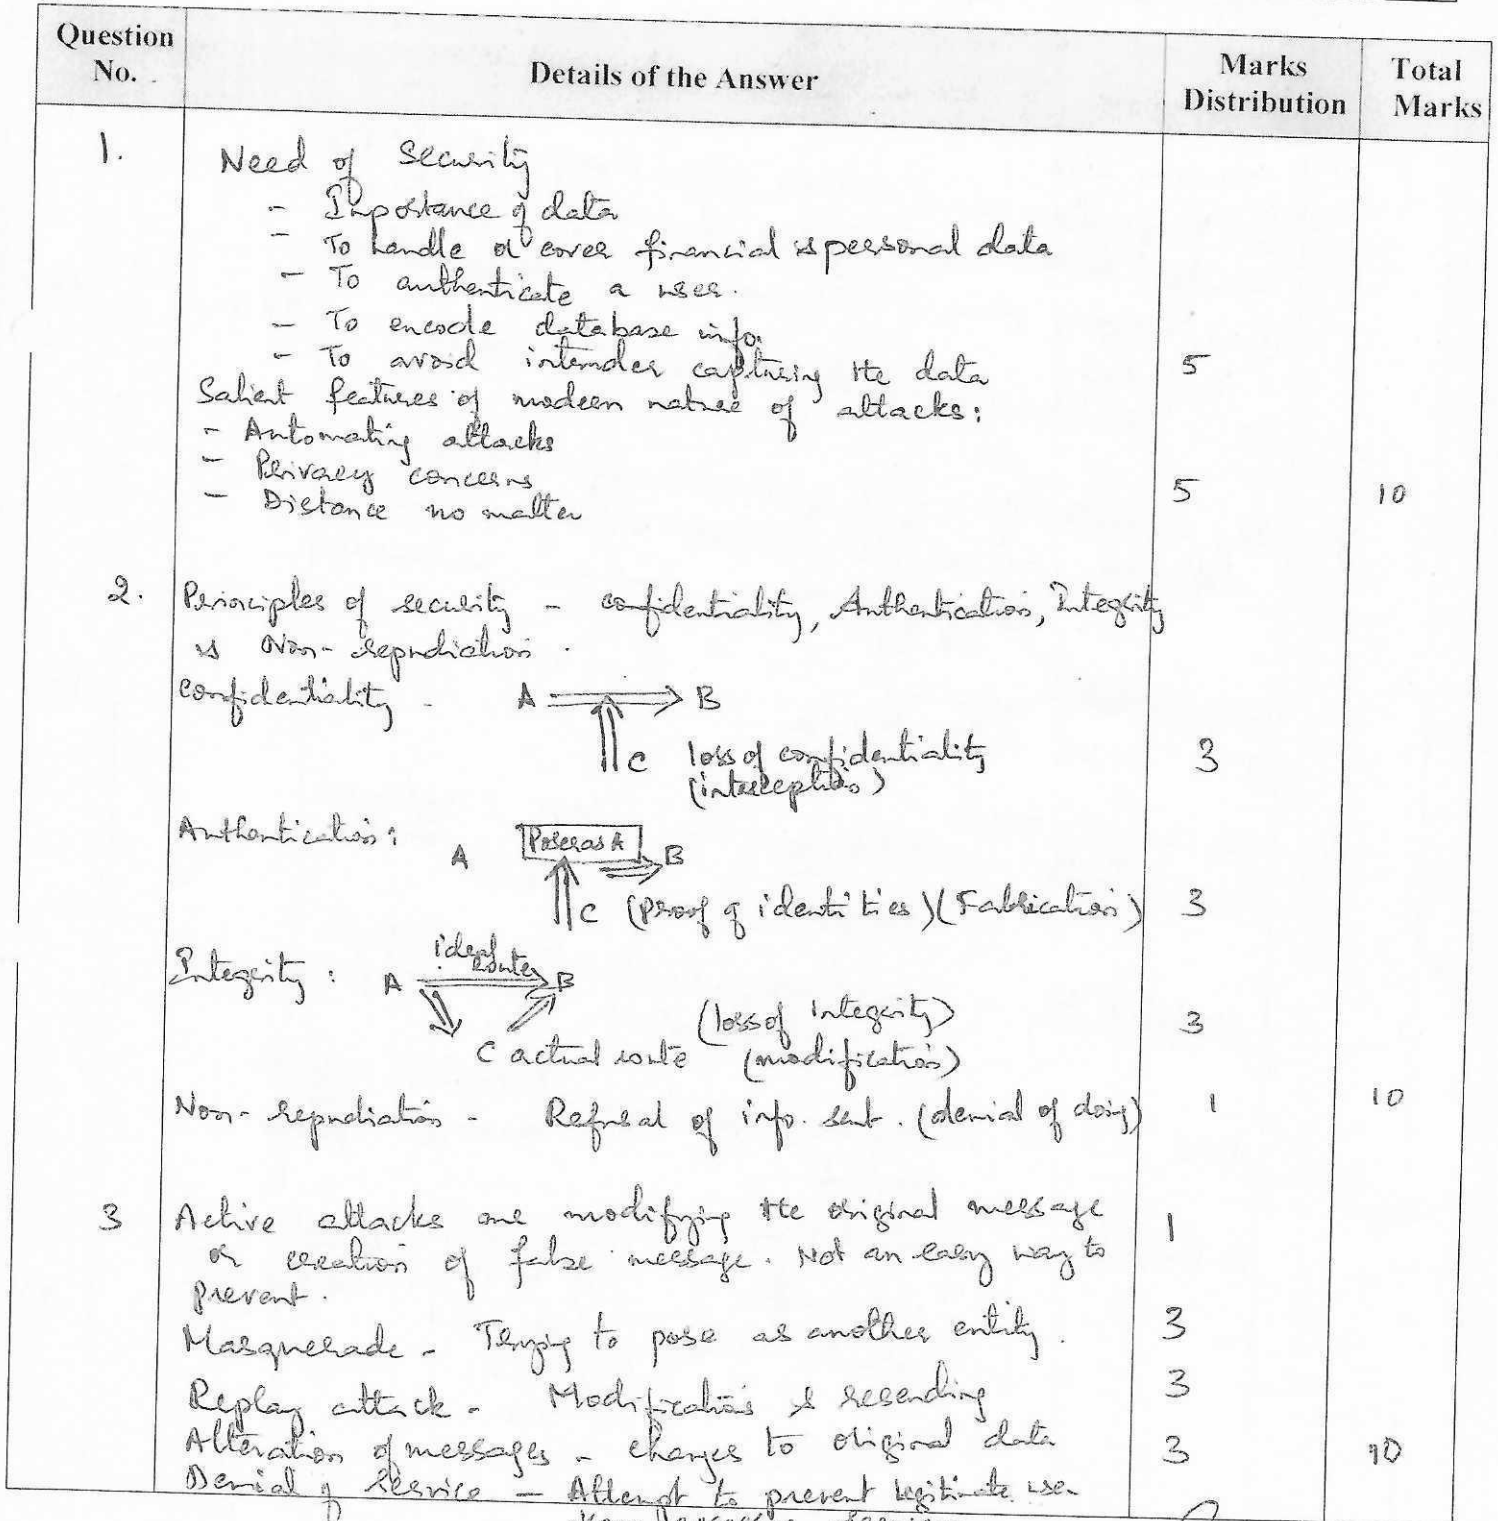 Question No. Details of the Answer Marks Distribution Total Marks
1. Need of Security
- Importance of data
- To handle or cover financial & personal data
- To authenticate a user.
- To encode database info.
- To avoid intruder capturing the data 5
Salient features of modern nature of attacks:
- Automating attacks
- Privacy concerns
- Distance no matter 5 10
2. Principles of security - confidentiality, Authentication, Integrity
& Non-repudiation.
Confidentiality - A B
C loss of confidentiality 3
(interception)
Authentication: A Poses as A B
C (proof of identities) (Fabrication) 3
Integrity: A ideal route B
(loss of Integrity) 3
C actual route (modification)
Non-repudiation - Refusal of info. sent. (denial of doing) 1 10
3 Active attacks are modifying the original message 1
or creation of false message. Not an easy way to
prevent.
Masquerade - Trying to pose as another entity. 3
Replay attack - Modification & resending 3
Alteration of messages - changes to original data 3 10
Denial of Service - Attempt to prevent legitimate use